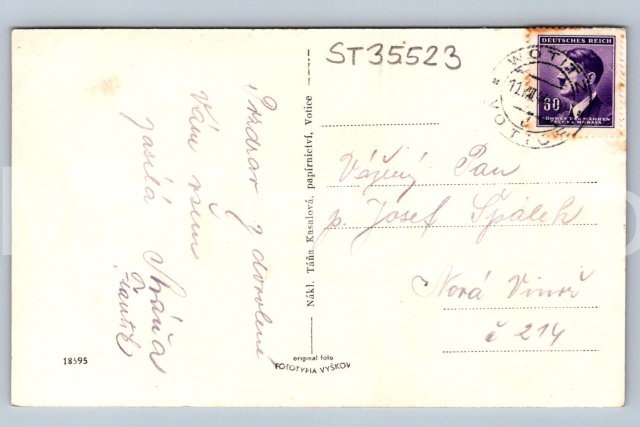 ST35523
DEUTSCHES REICH
60
BÖHMEN UND MÄHREN
ČECHY A MORAVA
WOTITZ
VOTICE
Pozdrav z dovolené
Vám všem
zasílá
František
Vážený Pan
p. Josef Špálek
Nová Vinoř
č 214
Nákl. Táňa Kasalová, papírnictví, Votice
18595
original foto
FOTOTYPIA VYŠKOV